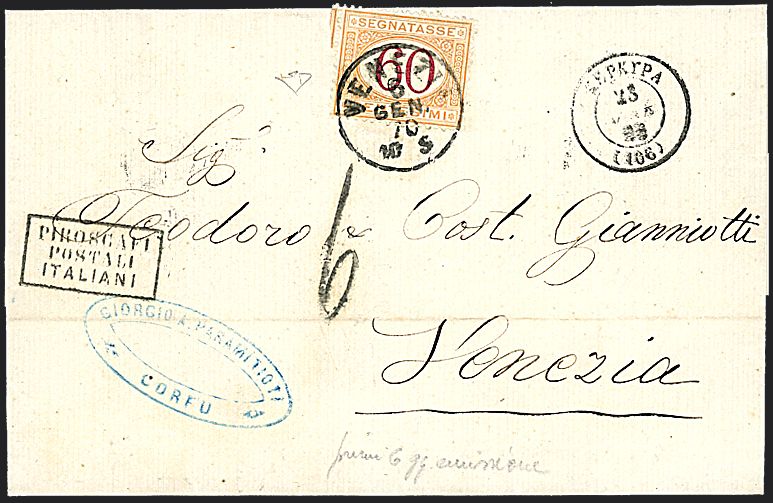 SEGNATASSE
60
CENTESIMI
VENEZIA
6
GEN.
70
10 S
ΚΕΡΚΥΡΑ
23
(106)
Sig.ri
Teodoro & Cost. Gianniotti
Venezia
6
PIROSCAFI
POSTALI
ITALIANI
GIORGIO A. PARAMITIOTI
CORFU
primi 6 gg emissione